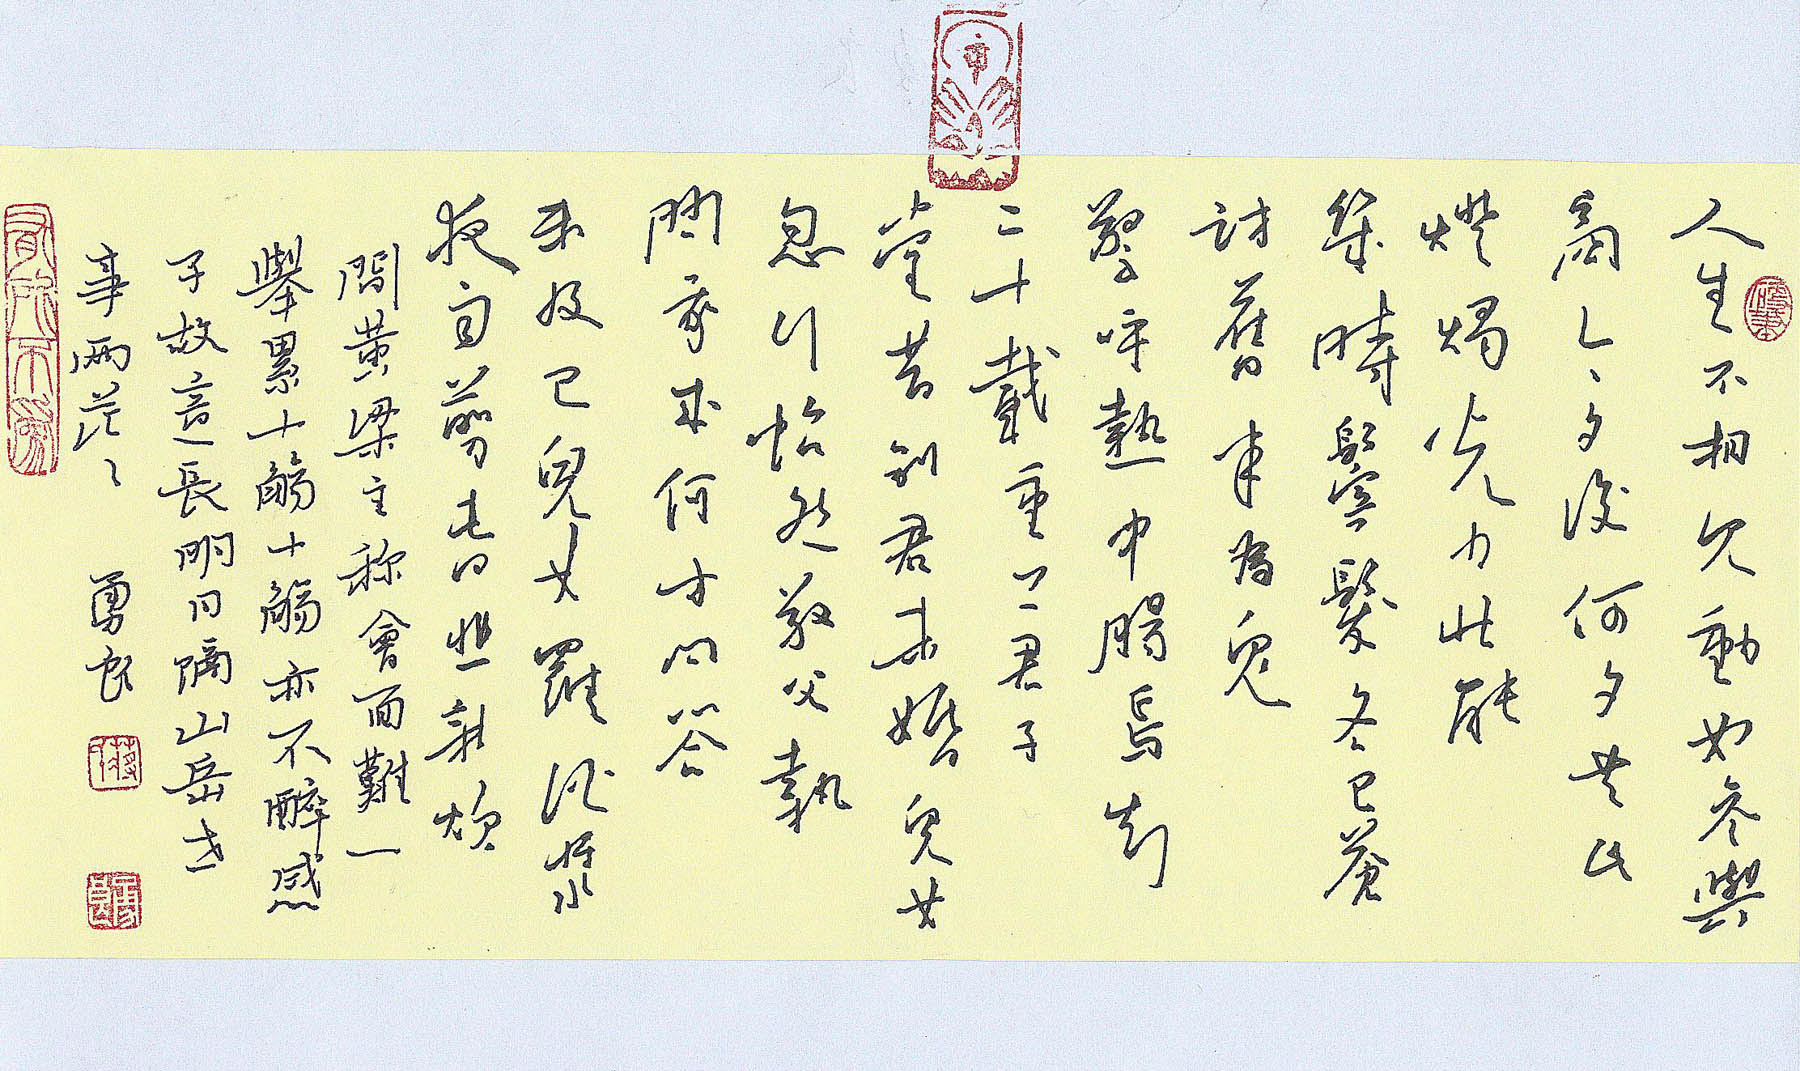 人生不相見動如參與
商今夕復何夕共此
燈燭光少壯能
幾時鬢髮各已蒼
訪舊半為鬼
驚呼熱中腸焉知
二十載重上君子
堂昔別君未婚兒女
忽行怡然敬父執
問我來何方問答
未及已兒女羅酒漿
夜雨剪春韭新炊
間黃粱主称會面難一
舉累十觴十觴亦不醉感
子故意長明日隔山岳世
事兩茫々 勇良
有所不為